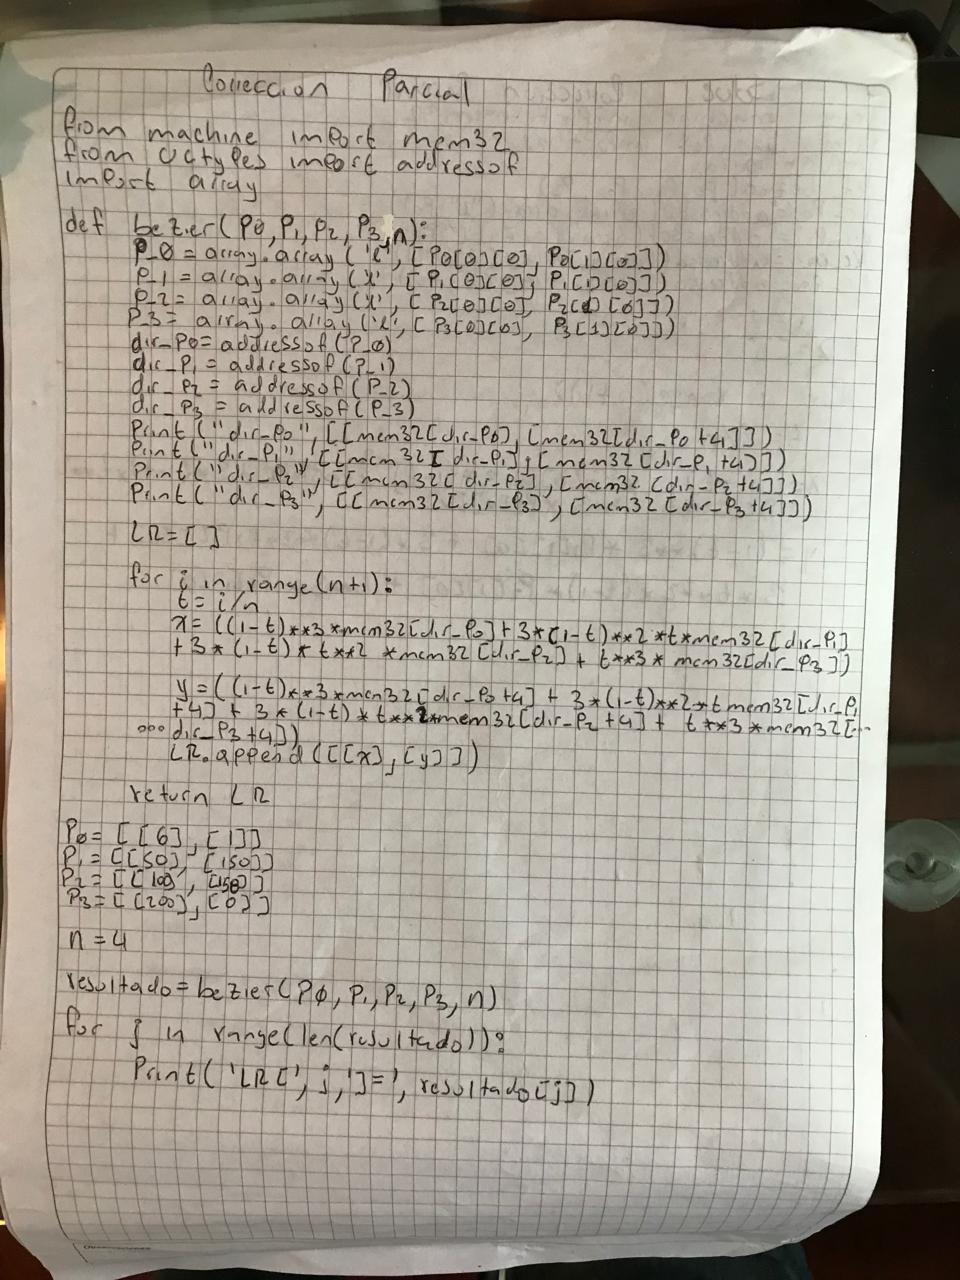 Corrección Parcial
from machine import mem32
from uctypes import addressof
import array
def bezier(P0, P1, P2, P3, n):
P_0 = array.array('l', [P0[0][0], P0[1][0]])
P_1 = array.array('l', [P1[0][0], P1[1][0]])
P_2 = array.array('l', [P2[0][0], P2[1][0]])
P_3 = array.array('l', [P3[0][0], P3[1][0]])
dir_P0 = addressof(P_0)
dir_P1 = addressof(P_1)
dir_P2 = addressof(P_2)
dir_P3 = addressof(P_3)
Print("dir_P0", [[mem32[dir_P0], [mem32[dir_P0+4]]])
Print("dir_P1", [[mem32[dir_P1], [mem32[dir_P1+4]]])
Print("dir_P2", [[mem32[dir_P2], [mem32[dir_P2+4]]])
Print("dir_P3", [[mem32[dir_P3], [mem32[dir_P3+4]]])
LR = []
for i in range(n+1):
t = i/n
x = ((1-t)**3*mem32[dir_P0]+3*(1-t)**2*t*mem32[dir_P1]
+3*(1-t)*t**2*mem32[dir_P2]+t**3*mem32[dir_P3])
y = ((1-t)**3*mem32[dir_P0+4]+3*(1-t)**2*t mem32[dir_P1
+4]+3*(1-t)*t**2*mem32[dir_P2+4]+t**3*mem32[...
... dir_P3+4])
LR.append([[x],[y]])
return LR
P0 = [[6], [1]]
P1 = [[50], [150]]
P2 = [[100, [150]]
P3 = [[200], [0]]
n = 4
resultado = bezier(P0, P1, P2, P3, n)
for j in range(len(resultado)):
Print('LR[', j, ']=', resultado[j])